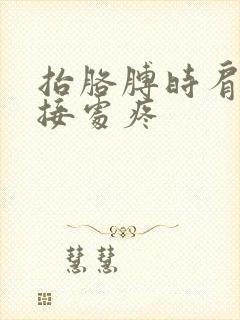 抬胳膊时肩
接处疼
慧慧